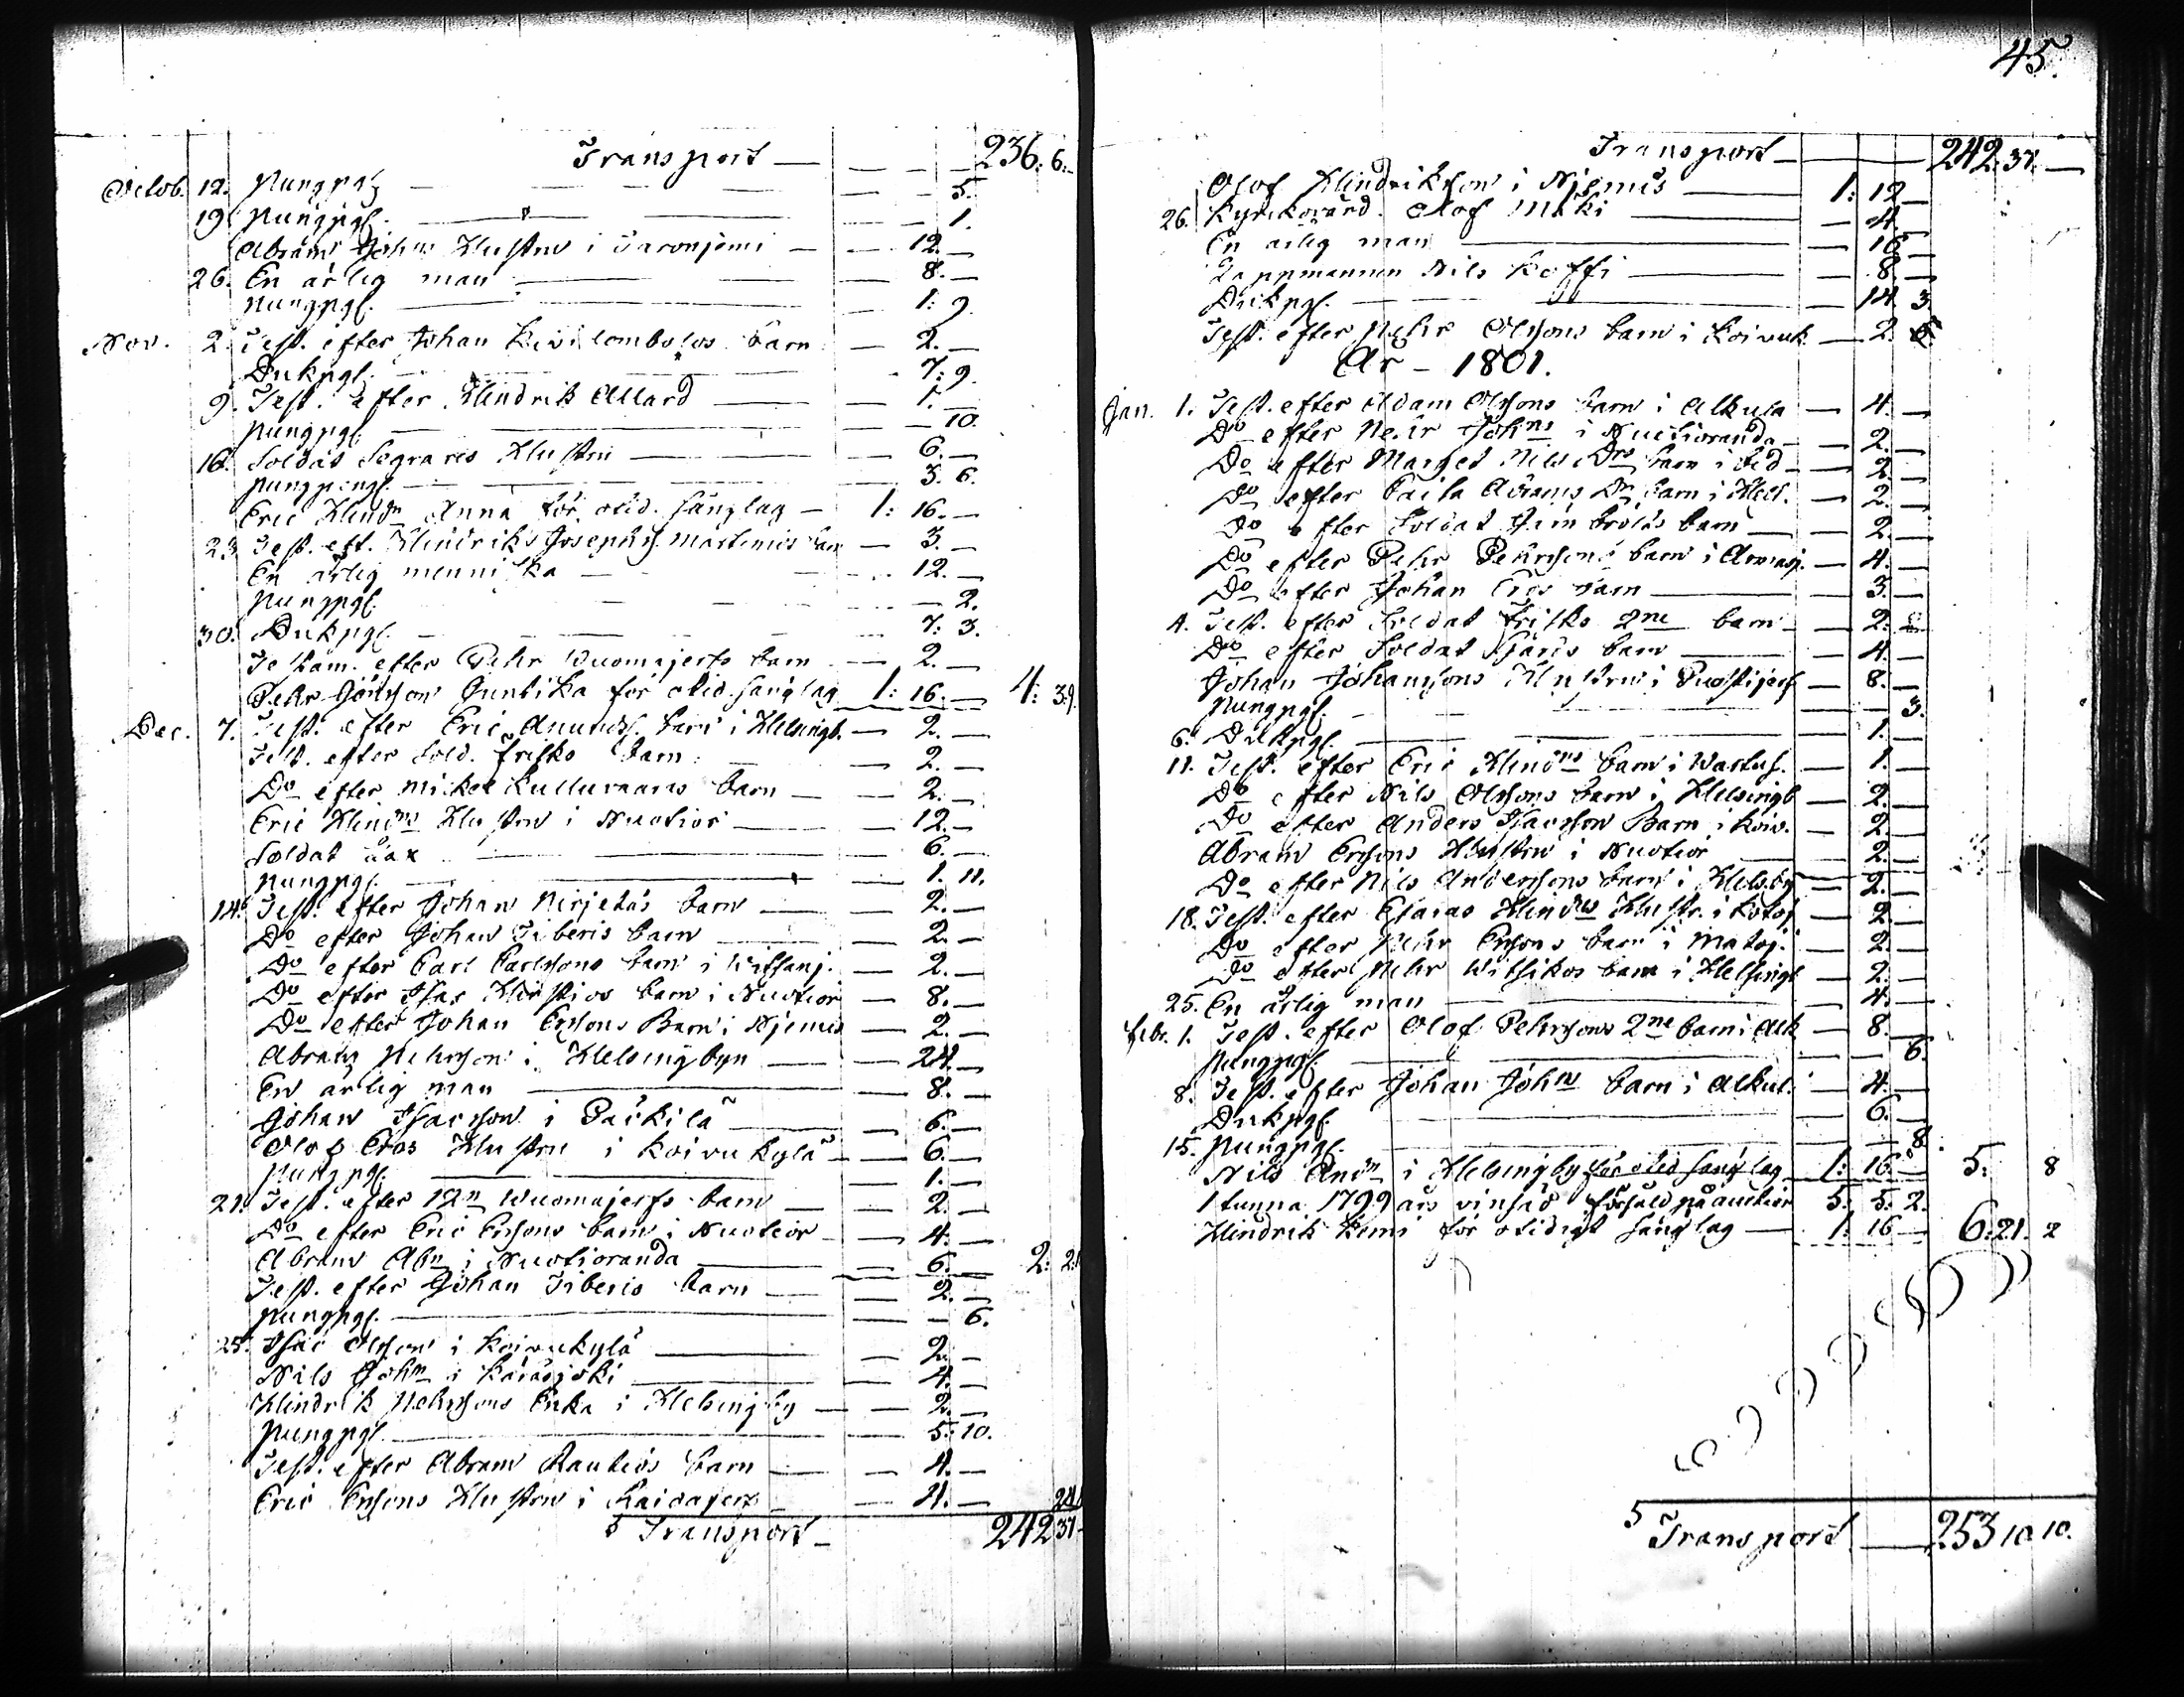 Transport — 236. 6.
Octob. 12. Pungpgr — 5.
19. Pungpgr. — 1.
Abram Johns Hustru i Taronjemi — 12. —
26. En ärlig man — 8. —
Pungpgr. — 1: 9.
Nov. 2. Test. efter Johan Kivilombolos barn — 2. —
Dukpgr. — 7: 9.
9. Test. efter Hindrik Allard — 1. —
Pungpgr. — 10.
16. Soldat Segraris Hustru — 6. —
Pungpengr. — 3. 6.
Eric Hindn Anna för otid. sänglag — 1: 16. —
23. Test. eft. Hindrik Josephss. Martimos barn — 3. —
En ärlig menniska — 12. —
Pungpgr. — 2.
30. Dukpgr. — 7: 3.
Testam. efter Pehr Wuomajerfs barn — 2. —
Pehr Jönsson Guntika för otid. sänglag 1: 16. — 4: 39.
Dec. 7. Test. efter Eric Anundss. barn i Helsingb. — 2. —
Test. efter Sold. Frisks barn — 2. —
Do efter Mickel Kulluvaaras barn — 2. —
Eric Hindns Hustru i Nuotior — 12. —
Soldat Sax — 6. —
Pungpgr. — 1. 11.
14. Test. efter Johan Nirjetäs barn — 2. —
Do efter Johan Tiberis barn — 2. —
Do efter Carl Carlssons barn i Witsanj. — 2. —
Do efter Isac barn i Nuotior — 8. —
Do efter Johan Erssons Barn i Njemis — 2. —
Abram Pehrsson i Helsingbyn — 24. —
En ärlig man — 8. —
Johan Isacsson i Päckilä — 6. —
Olof Ers Hustru i Koivukylä — 6. —
Pungpgr. — 1. —
21. Test. efter 12n Wuomajerfs barn — 2. —
Do efter Eric Erssons barn i Nuotior — 4. —
Abram Abn i Nuotioranda — 6. — 2: 21
Test. efter Johan Tiberis barn — 2. —
Pungpgr. — 6.
25. Isac Olsson i Koivukylä — 2. —
Nils John i Karasjoki — 4. —
Hindrik Pehrssons Enka i Helsingby — 2. —
Pungpgr. — 5. 10.
Test. efter Abram Rautios barn — 4. —
Eric Erssons Hustru i Kaidajerf — 4. — 24
Transport — 242 37
45.
Transport — 242. 37. —
Olof Hindriksson i Njemis — 1: 12 —
26. Kyrckovärd. Olof Mäki — 4. —
En ärlig man — 16 —
Lappmannen Nils Koffi — 8. —
Dukpgr. — 14. 3.
Test. efter Pehr Olssons barn i Koivuk. — 2.
År — 1801.
Jan. 1. Test. efter Adam Olssons barn i Alkula — 4. —
Do efter Pehr Johns i Nuotioranda — 2. —
Do efter Marget Nils Drs barn i — 2. —
Do efter Caisa Abrams Dr barn i Hels. — 2. —
Do efter Soldat barn — 2. —
Do efter Pehr Pehrssons barn i Armasj. — 4. —
Do efter Johan Ers barn — 3. —
4. Test. efter Soldat Frisks 2ne barn — 2.
Do efter Soldat barn — 4. —
Johan Johanssons Hustru i Puostijerf — 8. —
Pungpgr. — 3.
6. Dukpgr. — 1. —
11. Test. efter Eric Hindns barn i — 1. —
Do efter Nils Olssons barn i Helsingb — 2. —
Do efter Anders Isacsson Barn i Koiv. — 2. —
Abram Erssons Hustru i Nuotior — 2. —
Do efter Nils Anderssons barn i Helsby — 2. —
18. Test. efter Esaias Hindns Hustr. i — 2. —
Do efter Pehr Erssons barn i Matoj. — 2. —
Do efter Pehr Witsikos barn i Helsingb — 2. —
25. En ärlig man — 4. —
Febr. 1. Test. efter Olof Pehrssons 2ne barn i Alk — 8. —
Pungpgr. — 6.
8. Test. efter Johan Johns barn i Alkul. — 4. —
Dukpgr. — 6. —
15. Pungpgr. — 8.
Nils Andn i Helsingby för otid sänglag 1: 16. — 5: 8
1 tunna 1799 års vinsäd försåld på auction 5: 5. 2.
Hindrik Kemi för otidigt sänglag — 1: 16 — 6: 21. 2
Transport — 253 10. 10.